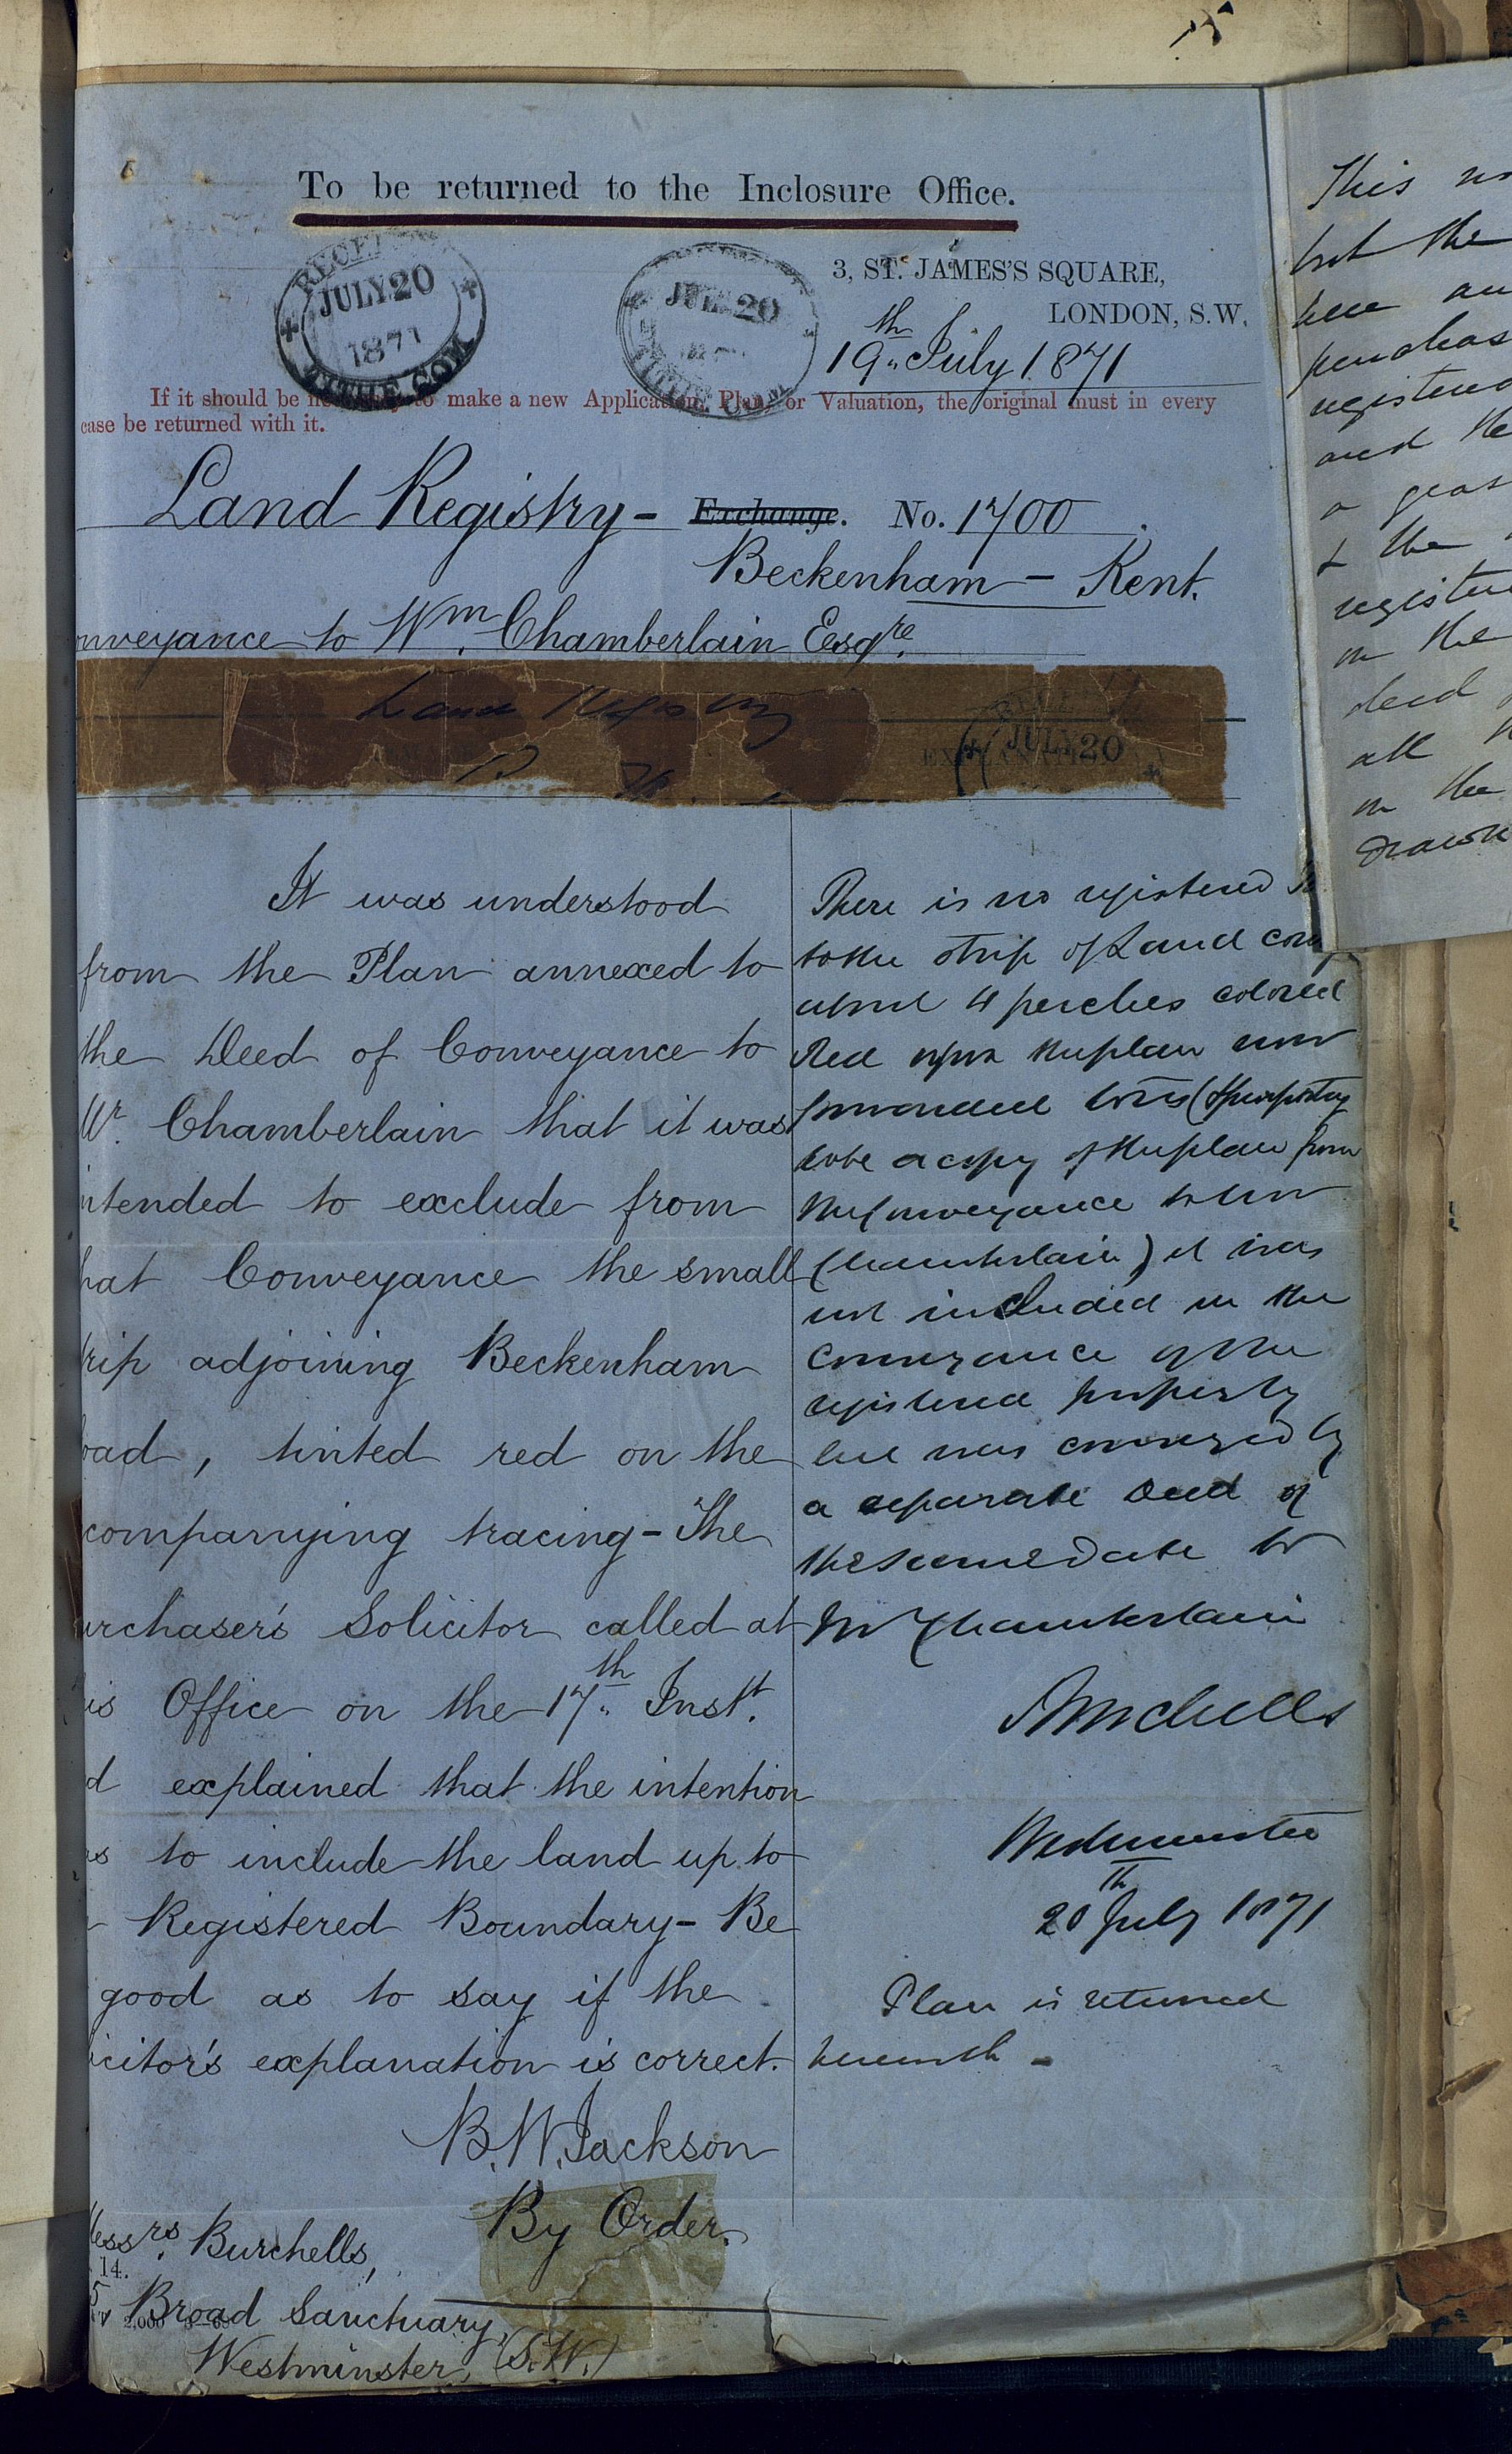 To be returned to the Inclosure Office.
JULY 20
1871
TITHE COM
JUL 20
3, ST. JAMES'S SQUARE,
LONDON, S.W.
19th July 1871
If it should be necessary to make a new Application, Plan, or Valuation, the original must in every
case be returned with it.
Land Registry - Exchange. No. 1700
Beckenham - Kent.
nveyance to Wm. Chamberlain Esqre.
Land Registry
JULY 20
It was understood
from the Plan annexed to
the Deed of Conveyance to
Mr. Chamberlain that it was
ntended to exclude from
hat Conveyance the small
rip adjoining Beckenham
oad, tinted red on the
companying tracing - The
urchaser's Solicitor called at
is Office on the 17th Instt.
d explained that the intention
as to include the land up to
Registered Boundary - Be
good as to say if the
icitor's explanation is correct.
B. W. Jackson
By Order.
Messrs. Burchells,
14.
5 Broad Sanctuary,
2,000
Westminster, (S.W.)
There is no registered
to the strip of Land
about 4 perches colored
Red upon the plan now
forwarded to us (purporting
to be a copy of the plan from
the Conveyance to Mr
Chamberlain) it was
not included in the
Conveyance of the
registered property
but was conveyed by
a separate Deed of
the same date to
Mr Chamberlain
Burchells
Westminster
20th July 1871
Plan is returned
herewith -
This
but the
here
purchas
registered
and the
a
& the
register
in the
deed
all
in the
drawn